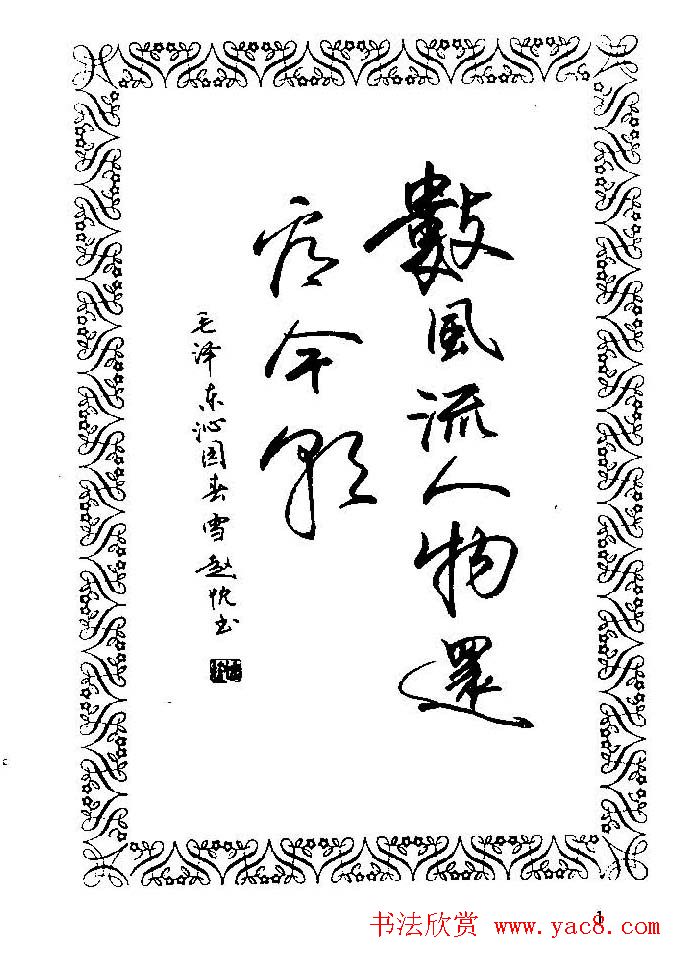 數風流人物還
看今朝
毛泽东沁园春雪赵忱书
1
书法欣赏 www.yac8.com